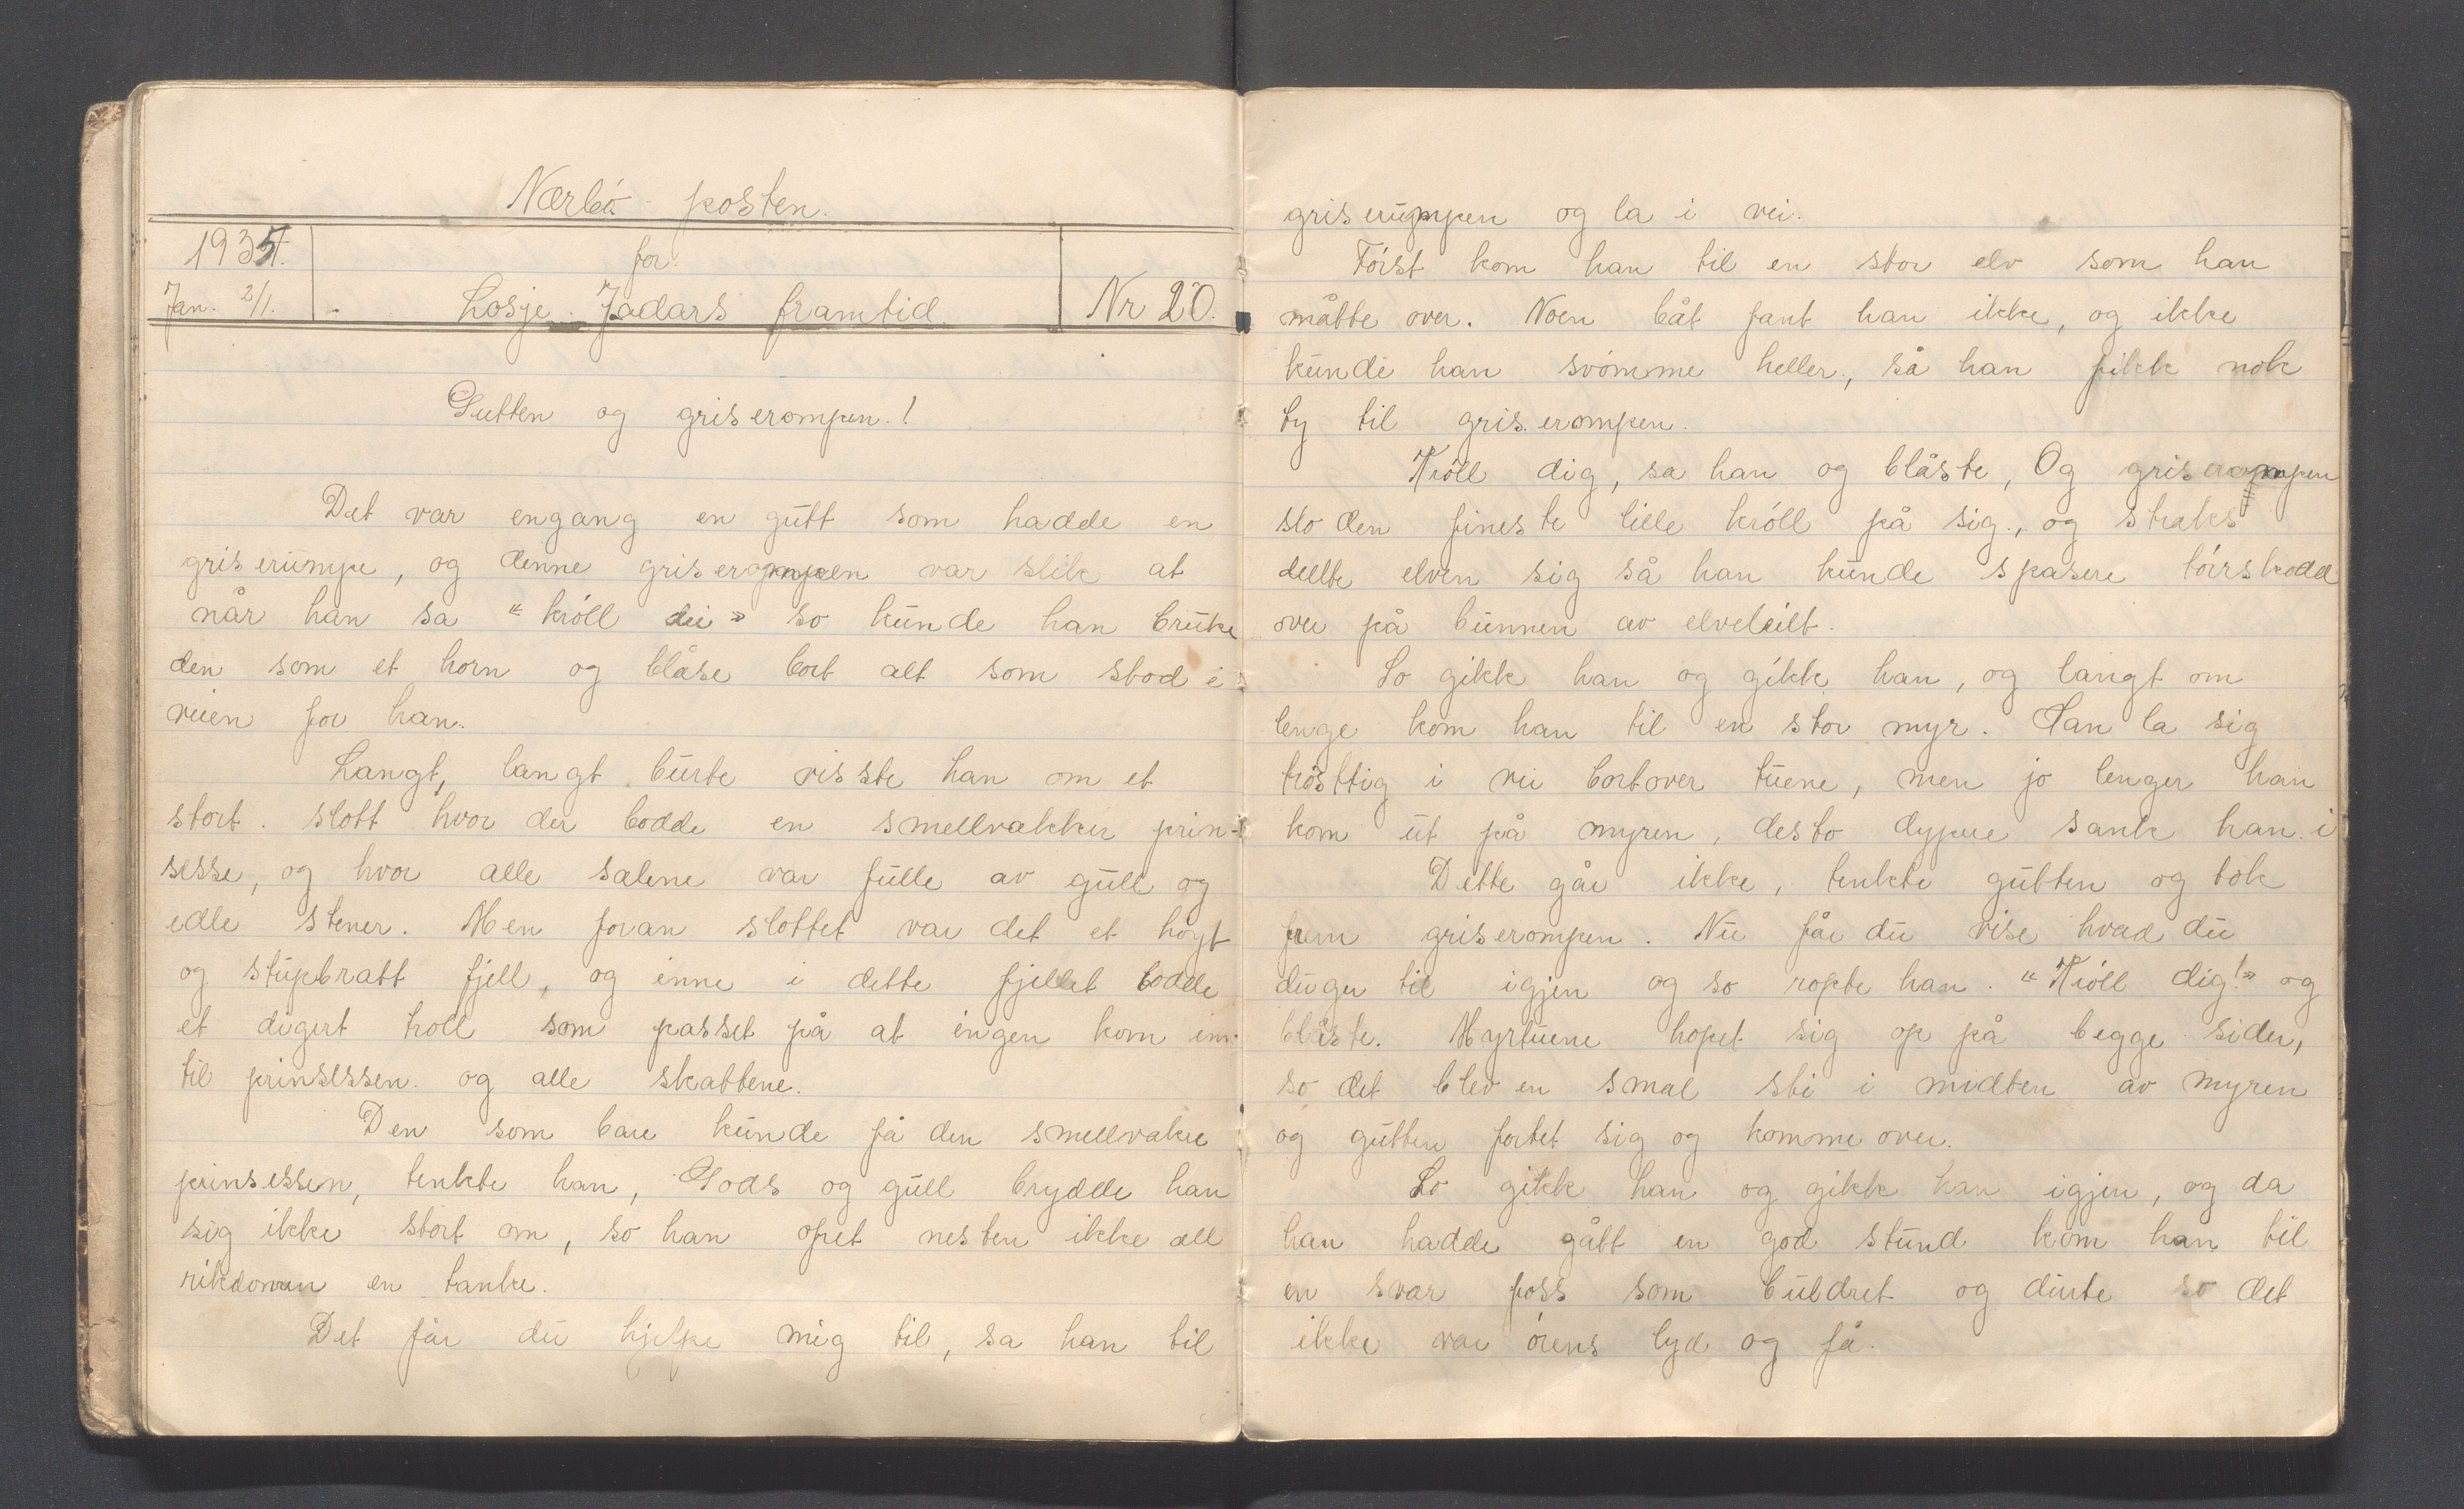 Nærbö - posten.
1935.
for
Jan. 2/1.
Losje Jadars framtid.
Nr 20.
Gutten og griserompen.!
Det var engang en gutt som hadde en
griserumpe, og denne griserompen var slik at
når han sa "króll dei" so kunde han bruke
den som et horn og blåse bort alt som stod i
veien for han.
Langt, langt burte visste han om et
stort slott hvor der bodde en smellvakker prin-
sesse, og hvor alle salene var fulle av gull og
edle stener. Men foran slottet var det et høgt
og stupbratt fjell, og inne i dette fjellet bodde
et digert troll som passet på at ingen kom inn
til prinsessen og alle skattene.
Den som bare kunde få den smellvakre
prinsessen, tenkte han, Gods og gull brydde han
sig ikke stort om, so han ofret nesten ikke all
rikdomen en tanke.
Det får du hjelpe mig til, sa han til
griserumpen og la i vei.
Først kom han til en stor elv som han
måtte over. Noen båt fant han ikke, og ikke
kunde han svømme heller, så han fikk nok
ty til griserompen.
Króll dig, sa han og blåste, Og griserompen
slo den fineste lille króll på sig, og straks
dellte elven sig så han kunde spasere tórrskodd
over på bunnen av elveleiet.
So gikk han og gikk han, og langt om
lenge kom han til en stor myr. Han la sig
trøsttig i vei bortover tuene, men jo lenger han
kom ut på myren, desto dypere sank han i
Dette går ikke, tenkte gutten og tok
frem griserompen. Nu får du vise hvad du
duger til igjen og so ropte han. "Króll dig!" og
blåste. Myrtuene hopet sig op på begge sider,
so det blev en smal sti i midten av myren
og gutten fortet sig og komme over.
So gikk han og gikk han igjen, og da
han hadde gått en god stund kom han til
en svær foss som buldret og durte so det
ikke var órens lyd og få.